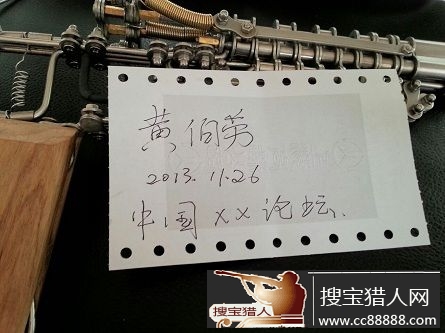 黄伯劳
2013.11.26
中国 xx 论坛.
搜宝猎人
搜宝猎人网
www.cc88888.com